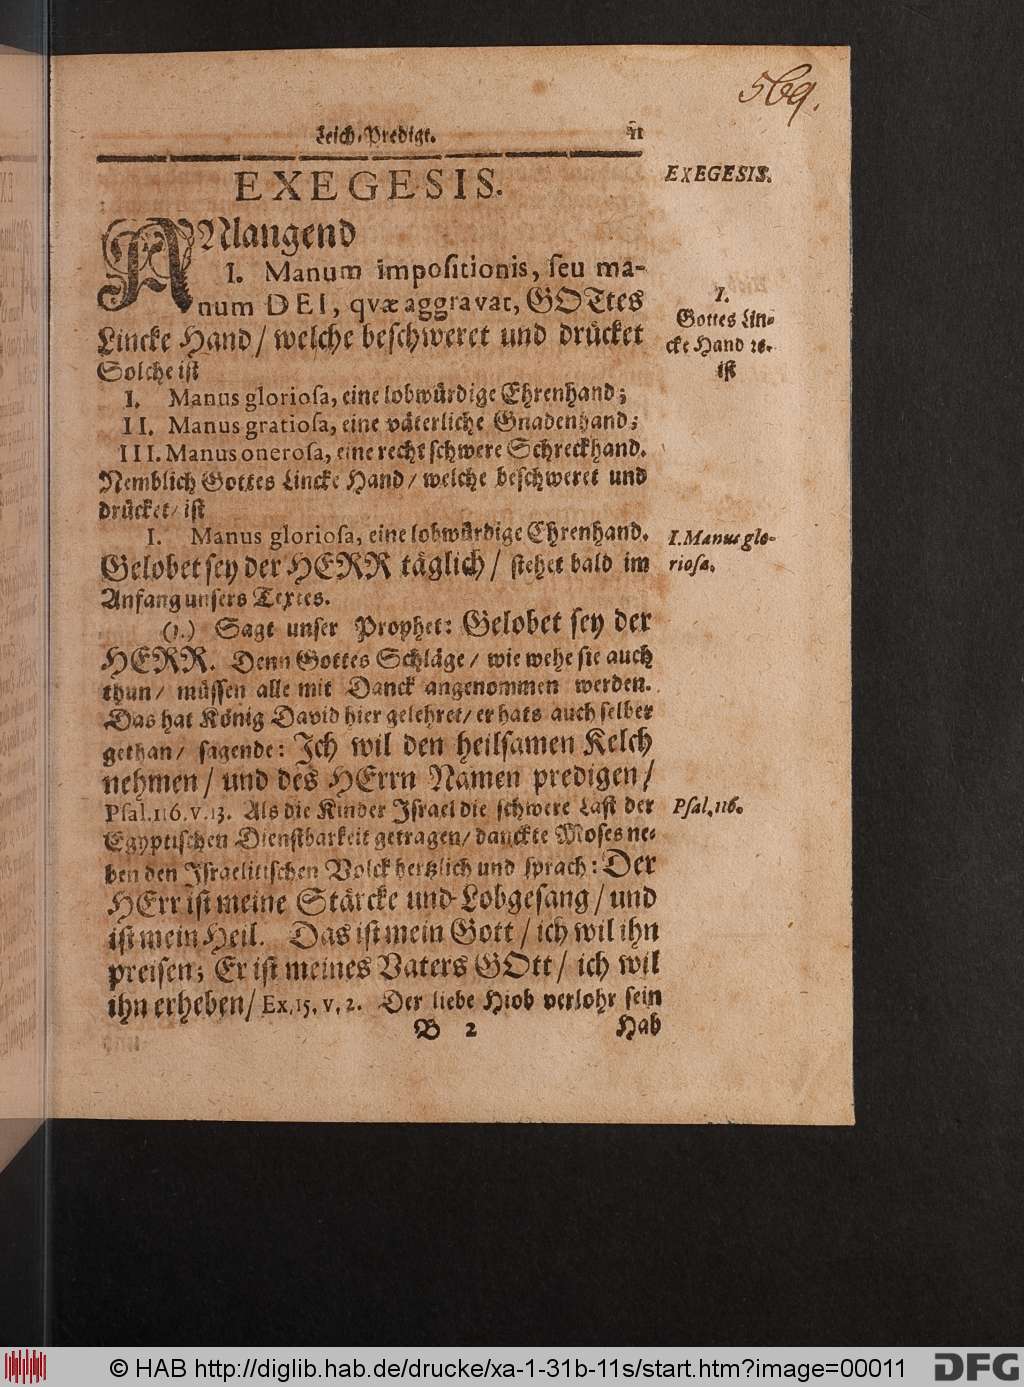 569.
Leich-Predigt.
11
EXEGESIS.
EXEGESIS.
ANlangend
I. Manum impositionis, seu ma-
num DEI, qvæ aggravat, GOTtes
Lincke Hand / welche beschweret und drücket
Solche ist
I.
Gottes Lin-
cke Hand ꝛc.
ist
I. Manus gloriosa, eine lobwürdige Ehrenhand;
II. Manus gratiosa, eine väterliche Gnadenhand;
III. Manus onerosa, eine recht schwere Schreckhand.
Nemblich Gottes Lincke Hand / welche beschweret und
drücket / ist
I. Manus gloriosa, eine lobwürdige Ehrenhand.
I. Manus glo-
riosa.
Gelobet sey der HERR täglich / stehet bald im
Anfang unsers Textes.
(1.) Sagt unser Prophet: Gelobet sey der
HERR. Denn Gottes Schläge / wie wehe sie auch
thun / müssen alle mit Danck angenommen werden.
Das hat König David hier gelehret / er hats auch selber
gethan / sagende: Ich wil den heilsamen Kelch
nehmen / und des HErrn Namen predigen /
Psal. 116. v. 13. Als die Kinder Israel die schwere Last der
Psal. 116.
Egyptischen Dienstbarkeit getragen / danckte Moses ne-
ben den Israelitischen Volck hertzlich und sprach: Der
HErr ist meine Stärcke und Lobgesang / und
ist mein Heil. Das ist mein Gott / ich wil ihn
preisen; Er ist meines Vaters GOtt / ich wil
ihn erheben / Ex. 15. v. 2. Der liebe Hiob verlohr sein
B 2
Hab
© HAB http://diglib.hab.de/drucke/xa-1-31b-11s/start.htm?image=00011
DFG